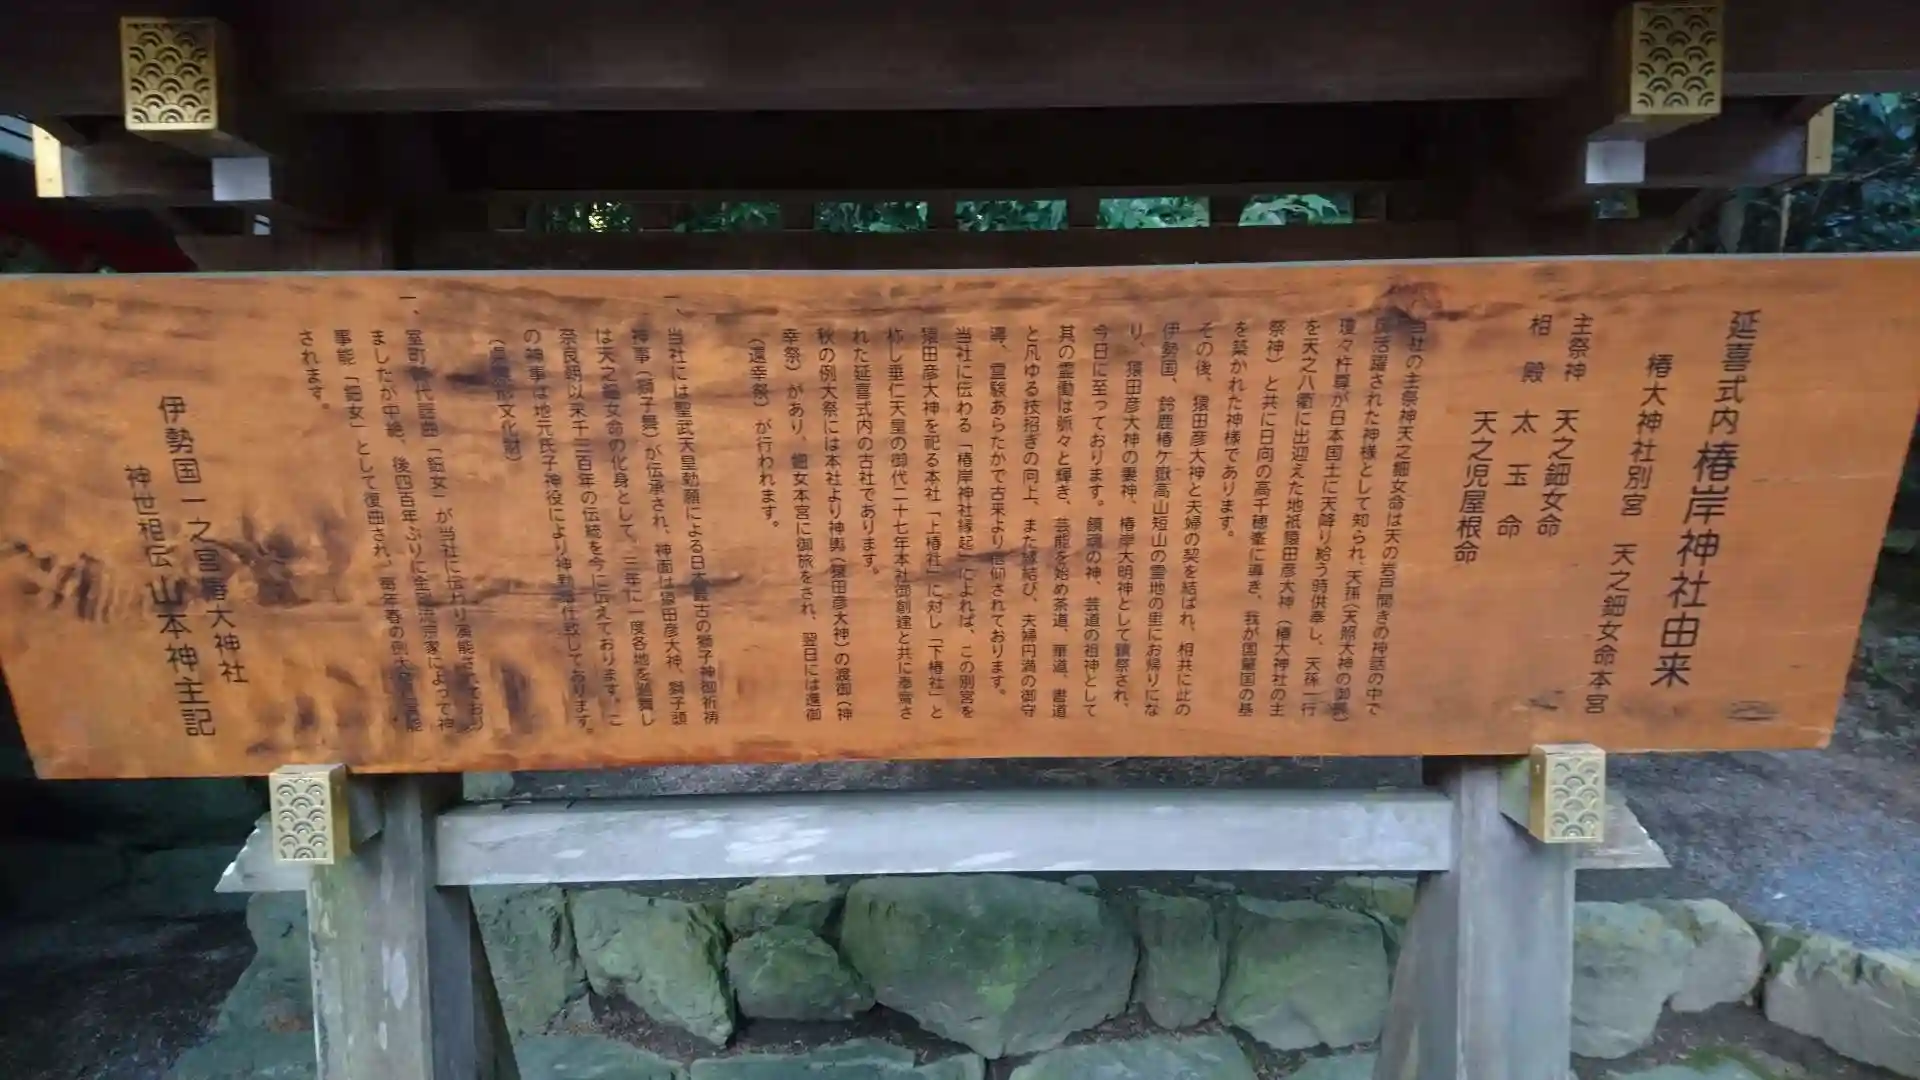 延喜式内 椿岸神社由来
椿大神社別宮 天之鈿女命本宮
主祭神 天之鈿女命
相殿 太玉命
天之児屋根命
当社の主祭神天之鈿女命は天の岩戸開きの神話の中で
御活躍された神様として知られ、天孫(天照大神の御孫)
瓊々杵尊が日本国土に天降り給う時供奉し、天孫一行
を天之八衢に出迎えた地祇猿田彦大神(椿大神社の主
祭神)と共に日向の高千穂峯に導き、我が国肇国の基
を築かれた神様であります。
その後、猿田彦大神と夫婦の契を結ばれ、相共に此の
伊勢国、鈴鹿椿ケ嶽高山短山の霊地の里にお帰りにな
り、猿田彦大神の妻神、椿岸大明神として鎮祭され、
今日に至っております。鎮魂の神、芸道の祖神として
其の霊働は弥々と輝き、芸能を始め茶道、華道、書道
と凡ゆる技招ぎの向上、また縁結び、夫婦円満の御守
導、霊験あらたかで古来より信仰されております。
当社に伝わる「椿岸神社縁起」によれば、この別宮を
猿田彦大神を祀る本社「上椿社」に対し「下椿社」と
称し垂仁天皇の御代二十七年本社御創建と共に奉斎さ
れた延喜式内の古社であります。
秋の例大祭には本社より神輿(猿田彦大神)の渡御(神
幸祭)があり、鈿女本宮に御旅をされ、翌日には還御
(還幸祭)が行われます。
一、当社には聖武天皇勅願による日本最古の獅子神御祈祷
神事(獅子舞)が伝承され、神面は猿田彦大神、獅子頭
は天之鈿女命の化身として、三年に一度各地を巡舞し
奈良朝以来千二百年の伝統を今に伝えております。こ
の神事は地元氏子神役により神勤奉仕致しております。
形文化財)
一、室町時代謡曲「鈿女」が当社に伝わり演能されており
ましたが中絶、後四百年ぶりに金剛流宗家によって神
事能「鈿女」として復曲され、毎年春の例大
されます。
伊勢国一之宮椿大神社
神世相伝 山本神主記